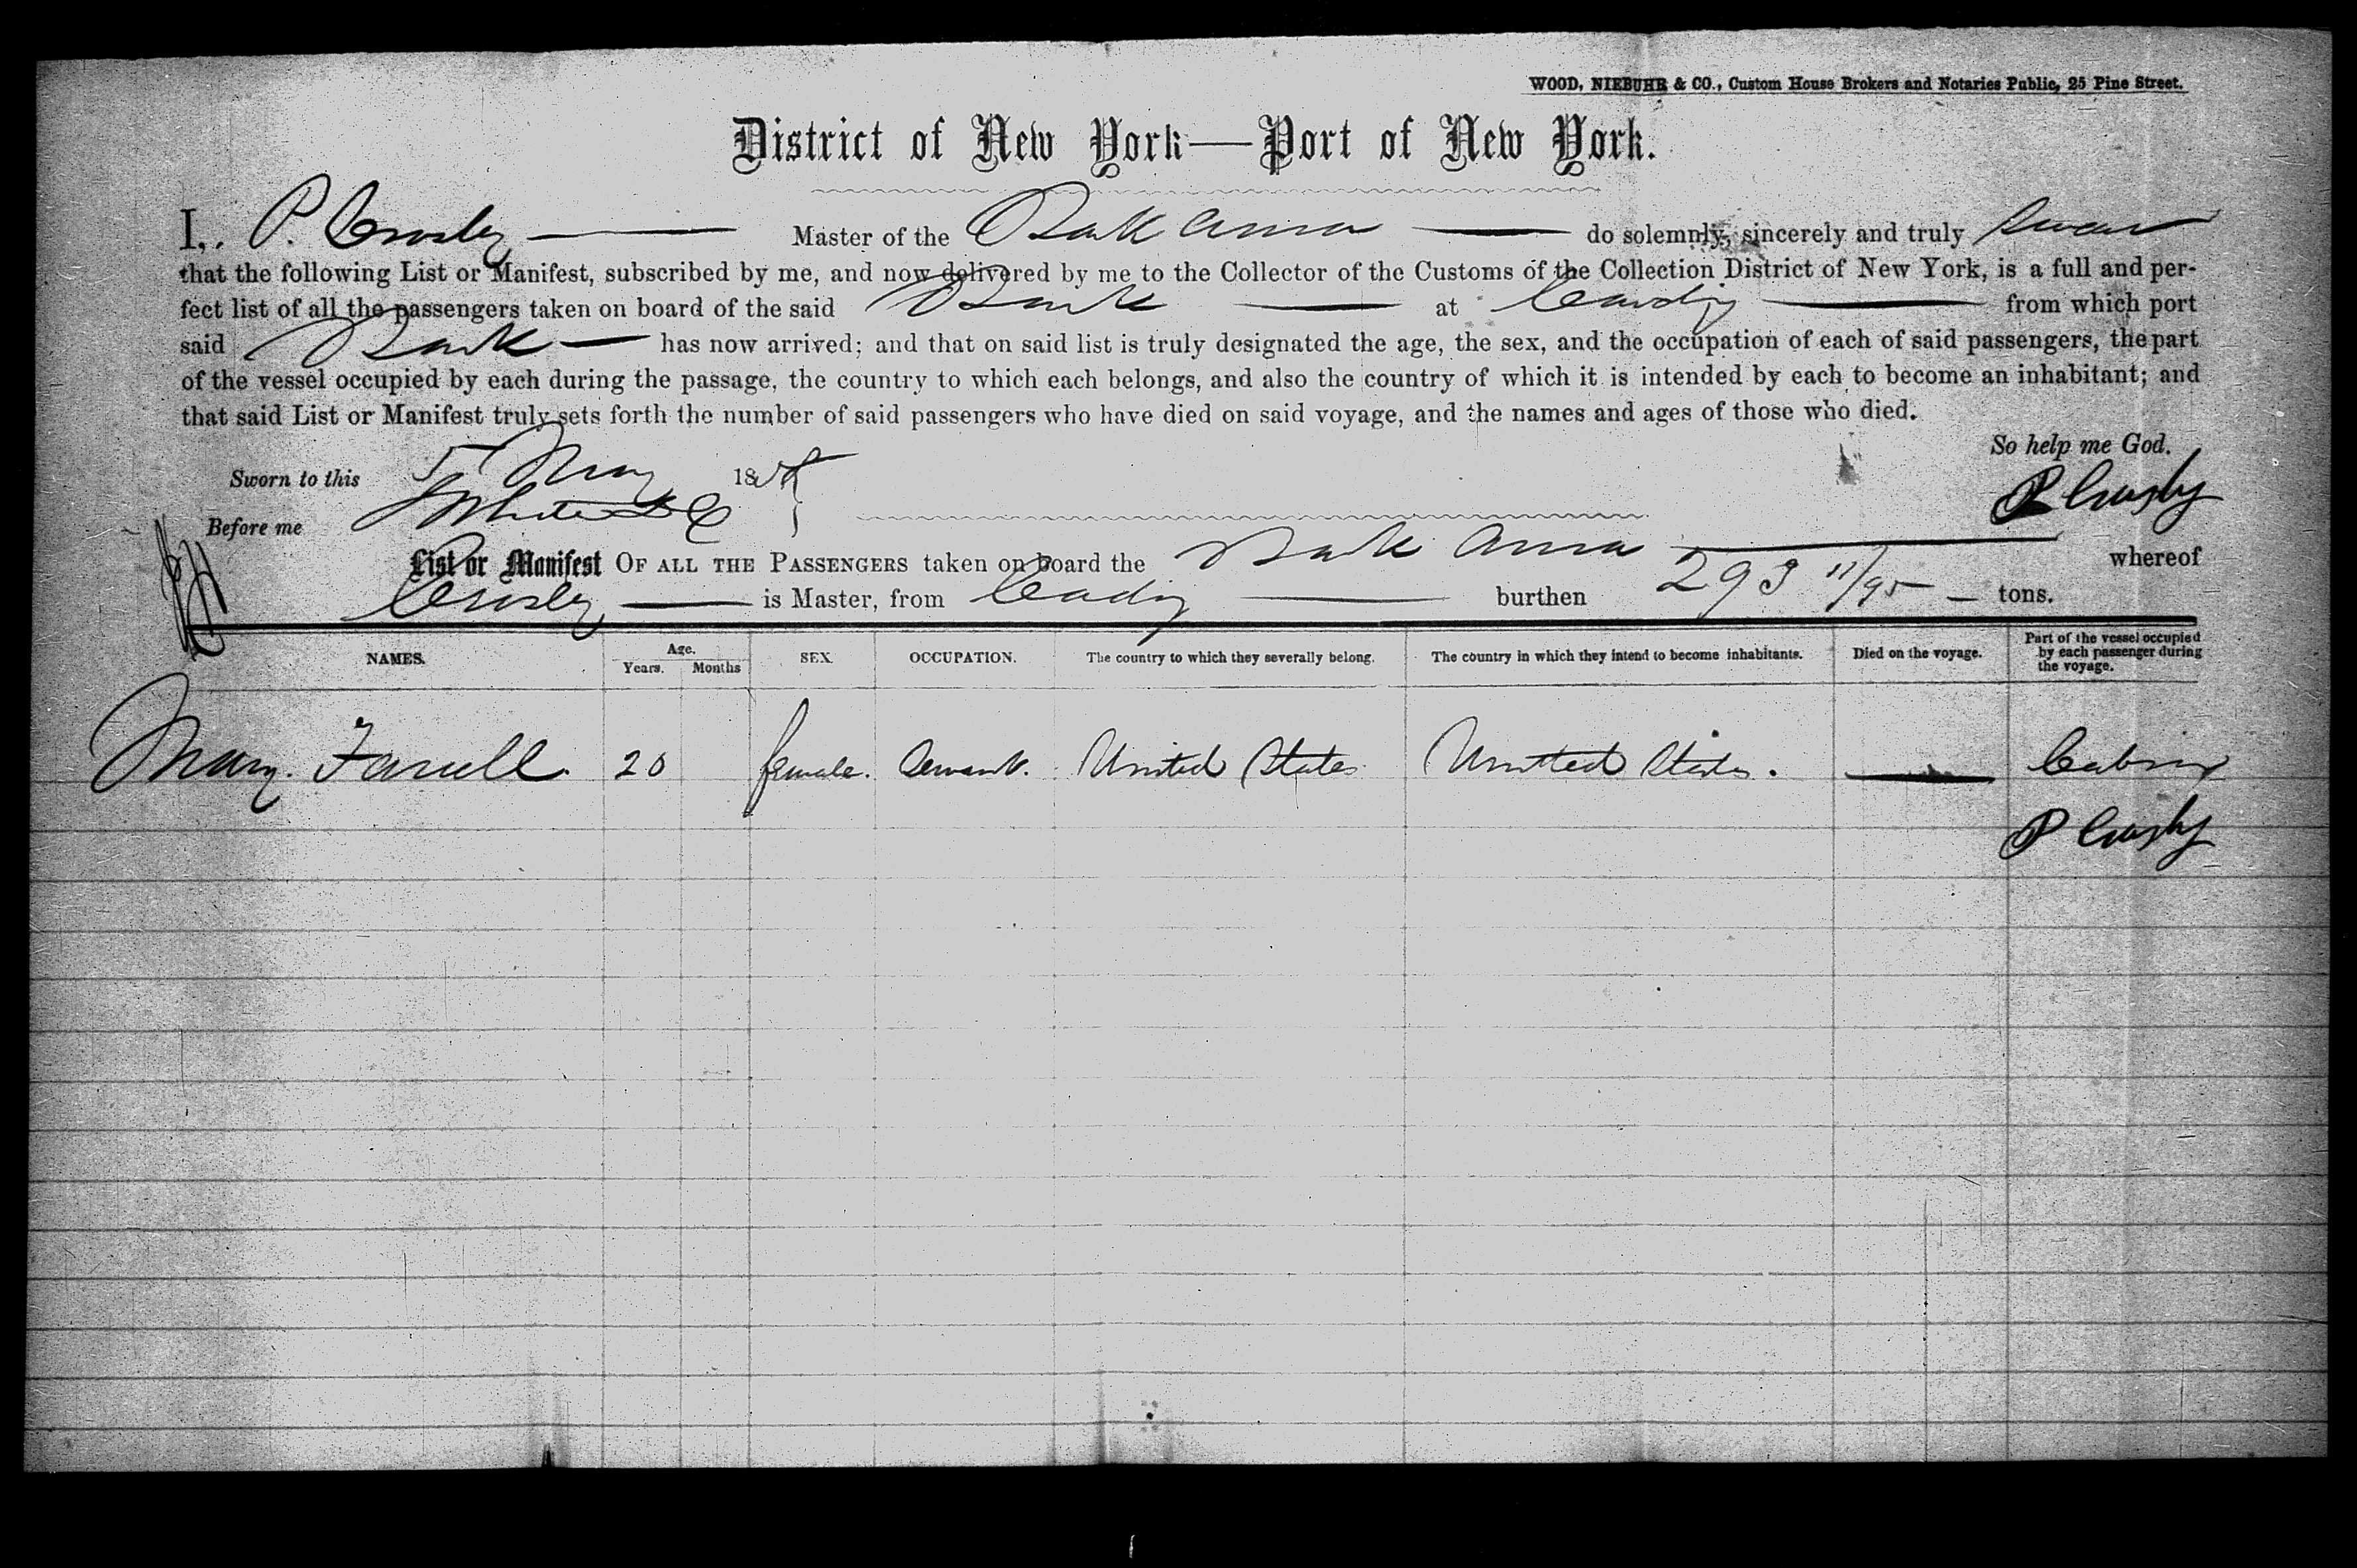 WOOD, NIEBUHR & CO., Custom House Brokers and Notaries Public, 25 Pine Street.
District of New York—Port of New York.
I, P. Crosby Master of the Bark Anna do solemnly, sincerely and truly swear
that the following List or Manifest, subscribed by me, and now delivered by me to the Collector of the Customs of the Collection District of New York, is a full and per-
fect list of all the passengers taken on board of the said Bark at Cardiz from which port
said Bark has now arrived; and that on said list is truly designated the age, the sex, and the occupation of each of said passengers, the part
of the vessel occupied by each during the passage, the country to which each belongs, and also the country of which it is intended by each to become an inhabitant; and
that said List or Manifest truly sets forth the number of said passengers who have died on said voyage, and the names and ages of those who died.
So help me God.
Sworn to this 5 May 18
P Crosby
Before me White
List or Manifest OF ALL THE PASSENGERS taken on board the Bark Anna whereof
Crosby is Master, from Cadiz burthen 293 11/95 tons.
NAMES. Age. Years. Months SEX. OCCUPATION. The country to which they severally belong. The country in which they intend to become inhabitants. Died on the voyage. Part of the vessel occupied by each passenger during the voyage.
Mary Farrell 20 female. Servant. United States United States. Cabin
P Crosby